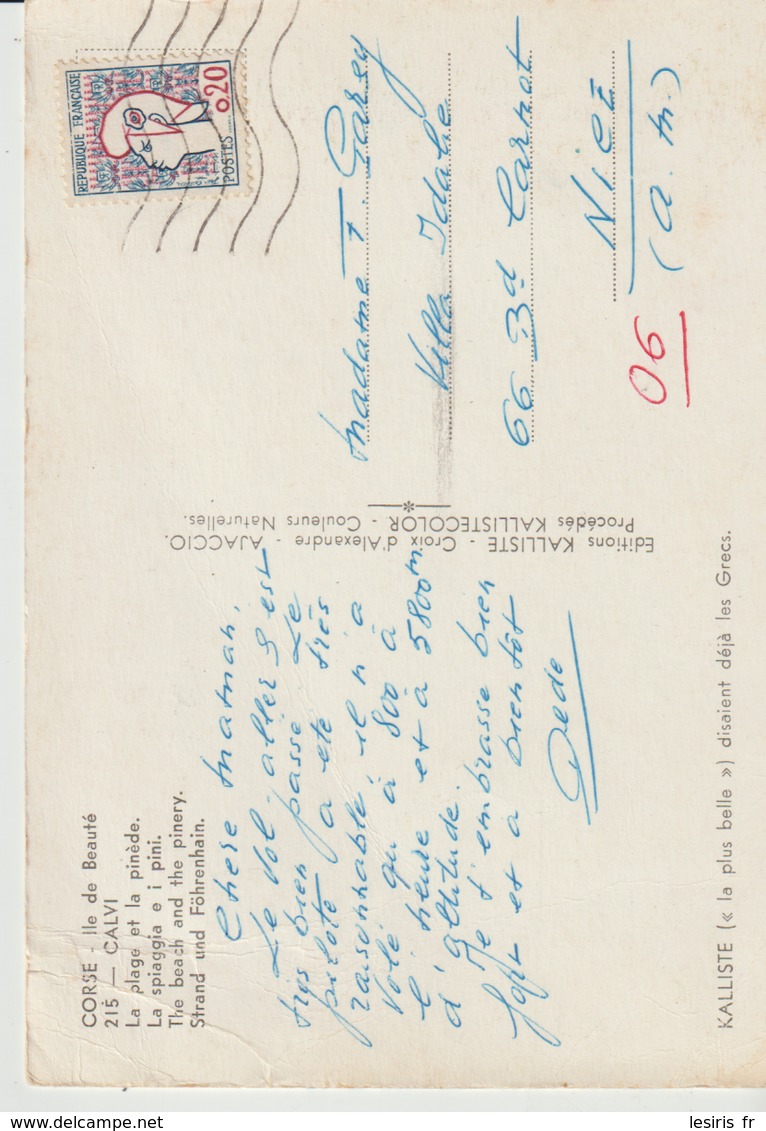 CORSE - Ile de Beauté
215 — CALVI
La plage et la pinède.
La spiaggia e i pini.
The beach and the pinery.
Strand und Föhrenhain.
Chère Maman,
Le vol-aller s'est
très bien passé. Le
pilote a été très
raisonnable il n'a
volé qu'à 800 à
l'heure et à 5800m
d'altitude.
Je t'embrasse bien
fort et à bientôt
Dédé
Editions KALLISTE - Croix d'Alexandre - AJACCIO.
Procédés KALLISTECOLOR - Couleurs Naturelles.
REPUBLIQUE FRANÇAISE
0,20
POSTES
Madame F. Garey
Villa Idahe
66 Bd Carnot
Nice
(a. m.)
06
KALLISTE (« la plus belle ») disaient déjà les Grecs.
lesiris fr